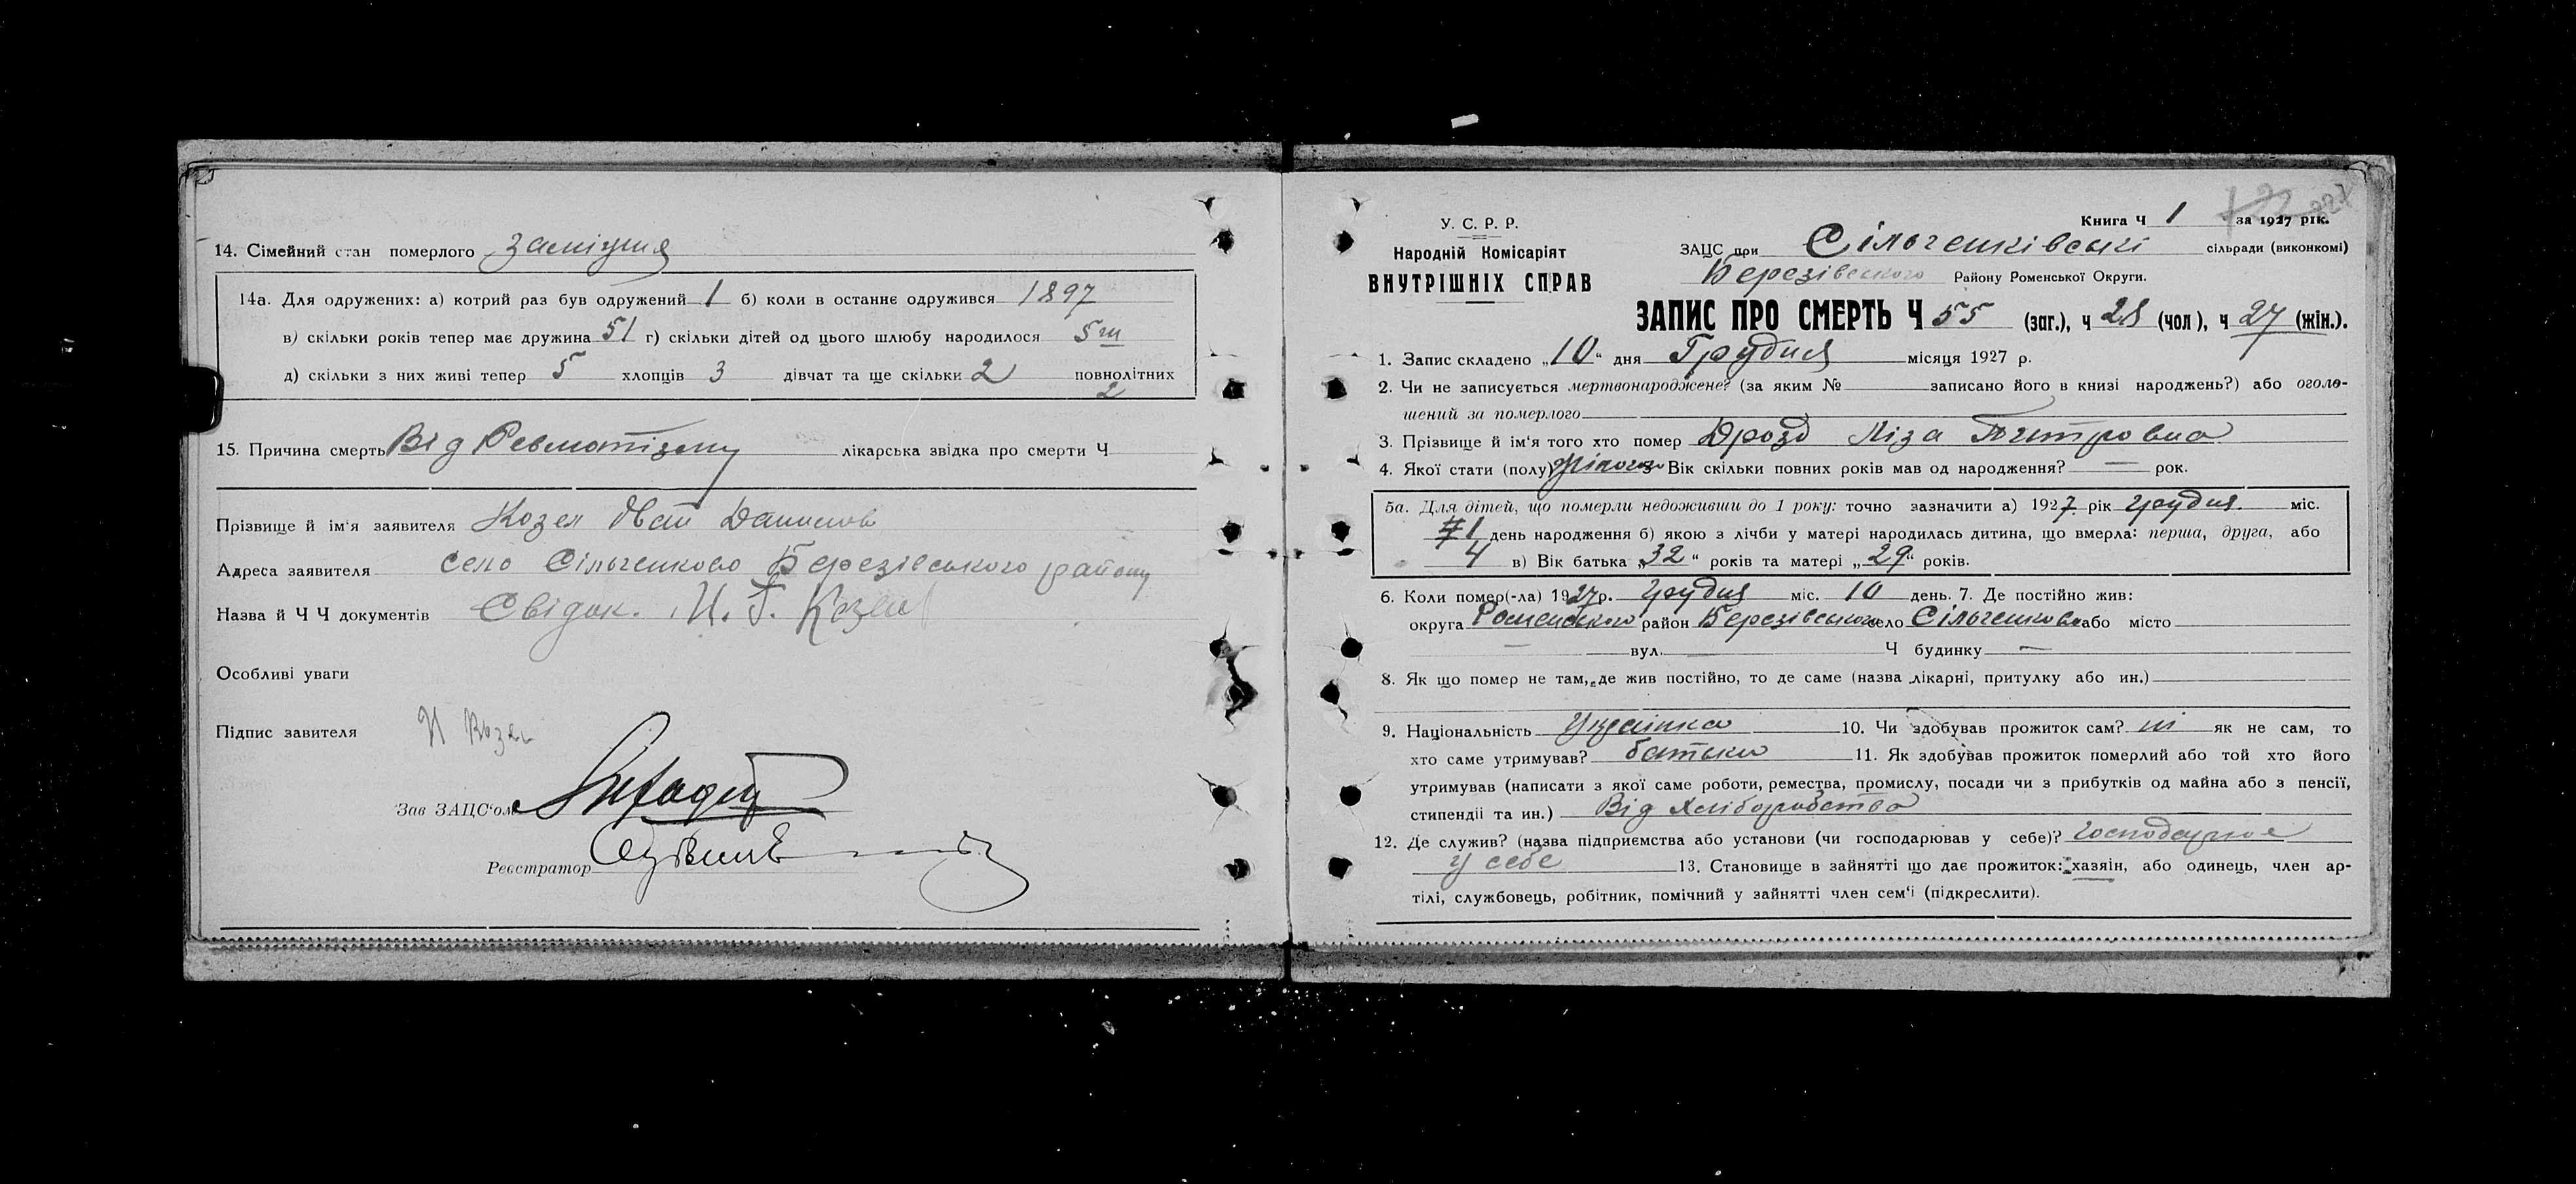 14. Сімейний стан померлого Заміжня
14а. Для одружених: а) котрий раз був одружений 1 б) коли в останнє одружився 1897
в) скільки років тепер має дружина 51 г) скільки дітей од цього шлюбу народилося 5ш
д) скільки з них живі тепер 5 хлопців 3 дівчат та ще скільки 2 повнолітних
2
15. Причина смерть Від Ревматізму лікарська звідка про смерти Ч
Прізвище й ім'я заявителя Козел Іван Данилов
Адреса заявителя село Сільченково Березівського району
Назва й Ч Ч документів Свідок. И. Козел
Особливі уваги
Підпис завителя И Козел
Зав ЗАЦС'ом
Реєстратор
Книга Ч 1 за 1927 рік.
У. С. Р. Р.
Народній Комісаріят
ВНУТРІШНІХ СПРАВ
ЗАЦС при Сільченківські сільради (виконкомі)
Березівського Району Роменської Округи.
ЗАПИС ПРО СМЕРТЬ Ч 55 (заг.), ч 28 (чол), ч 27 (жін.).
1. Запис складено „10“ дня Грудня місяця 1927 р.
2. Чи не записується мертвонароджене? (за яким № записано його в книзі народжень?) або оголо-
шений за померлого
3. Прізвище й ім'я того хто помер Дрозд Ліза Петровна
4. Якої статі (полу) жіночого Вік скільки повних років мав од народження? — рок.
5а. Для дітей, що померли недоживши до 1 року: точно зазначити а) 1927 рік грудня. міс.
1 день народження б) якою з лічби у матері народилась дитина, що вмерла: перша, друга, або
4 в) Вік батька „32“ років та матері „29“ років.
6. Коли помер(-ла) 1927р. грудня міс. 10 день. 7. Де постійно жив:
округа Роменського район Березівського село Сільченково або місто
— вул. — Ч будинку —
8. Як що помер не там, де жив постійно, то де саме (назва лікарні, притулку або ин.)
9. Національність Українка 10. Чи здобував прожиток сам? ні як не сам, то
хто саме утримував? батько 11. Як здобував прожиток померлий або той хто його
утримував (написати з якої саме роботи, ремества, промислу, посади чи з прибутків од майна або з пенсії,
стипендії та ин.) Від Хліборобства
12. Де служив? (назва підприємства або установи (чи господарював у себе)? господарює
у себе 13. Становище в зайнятті що дає прожиток: хазяін, або одинець, член ар-
тілі, службовець, робітник, помічний у зайнятті член сем'ї (підкреслити).